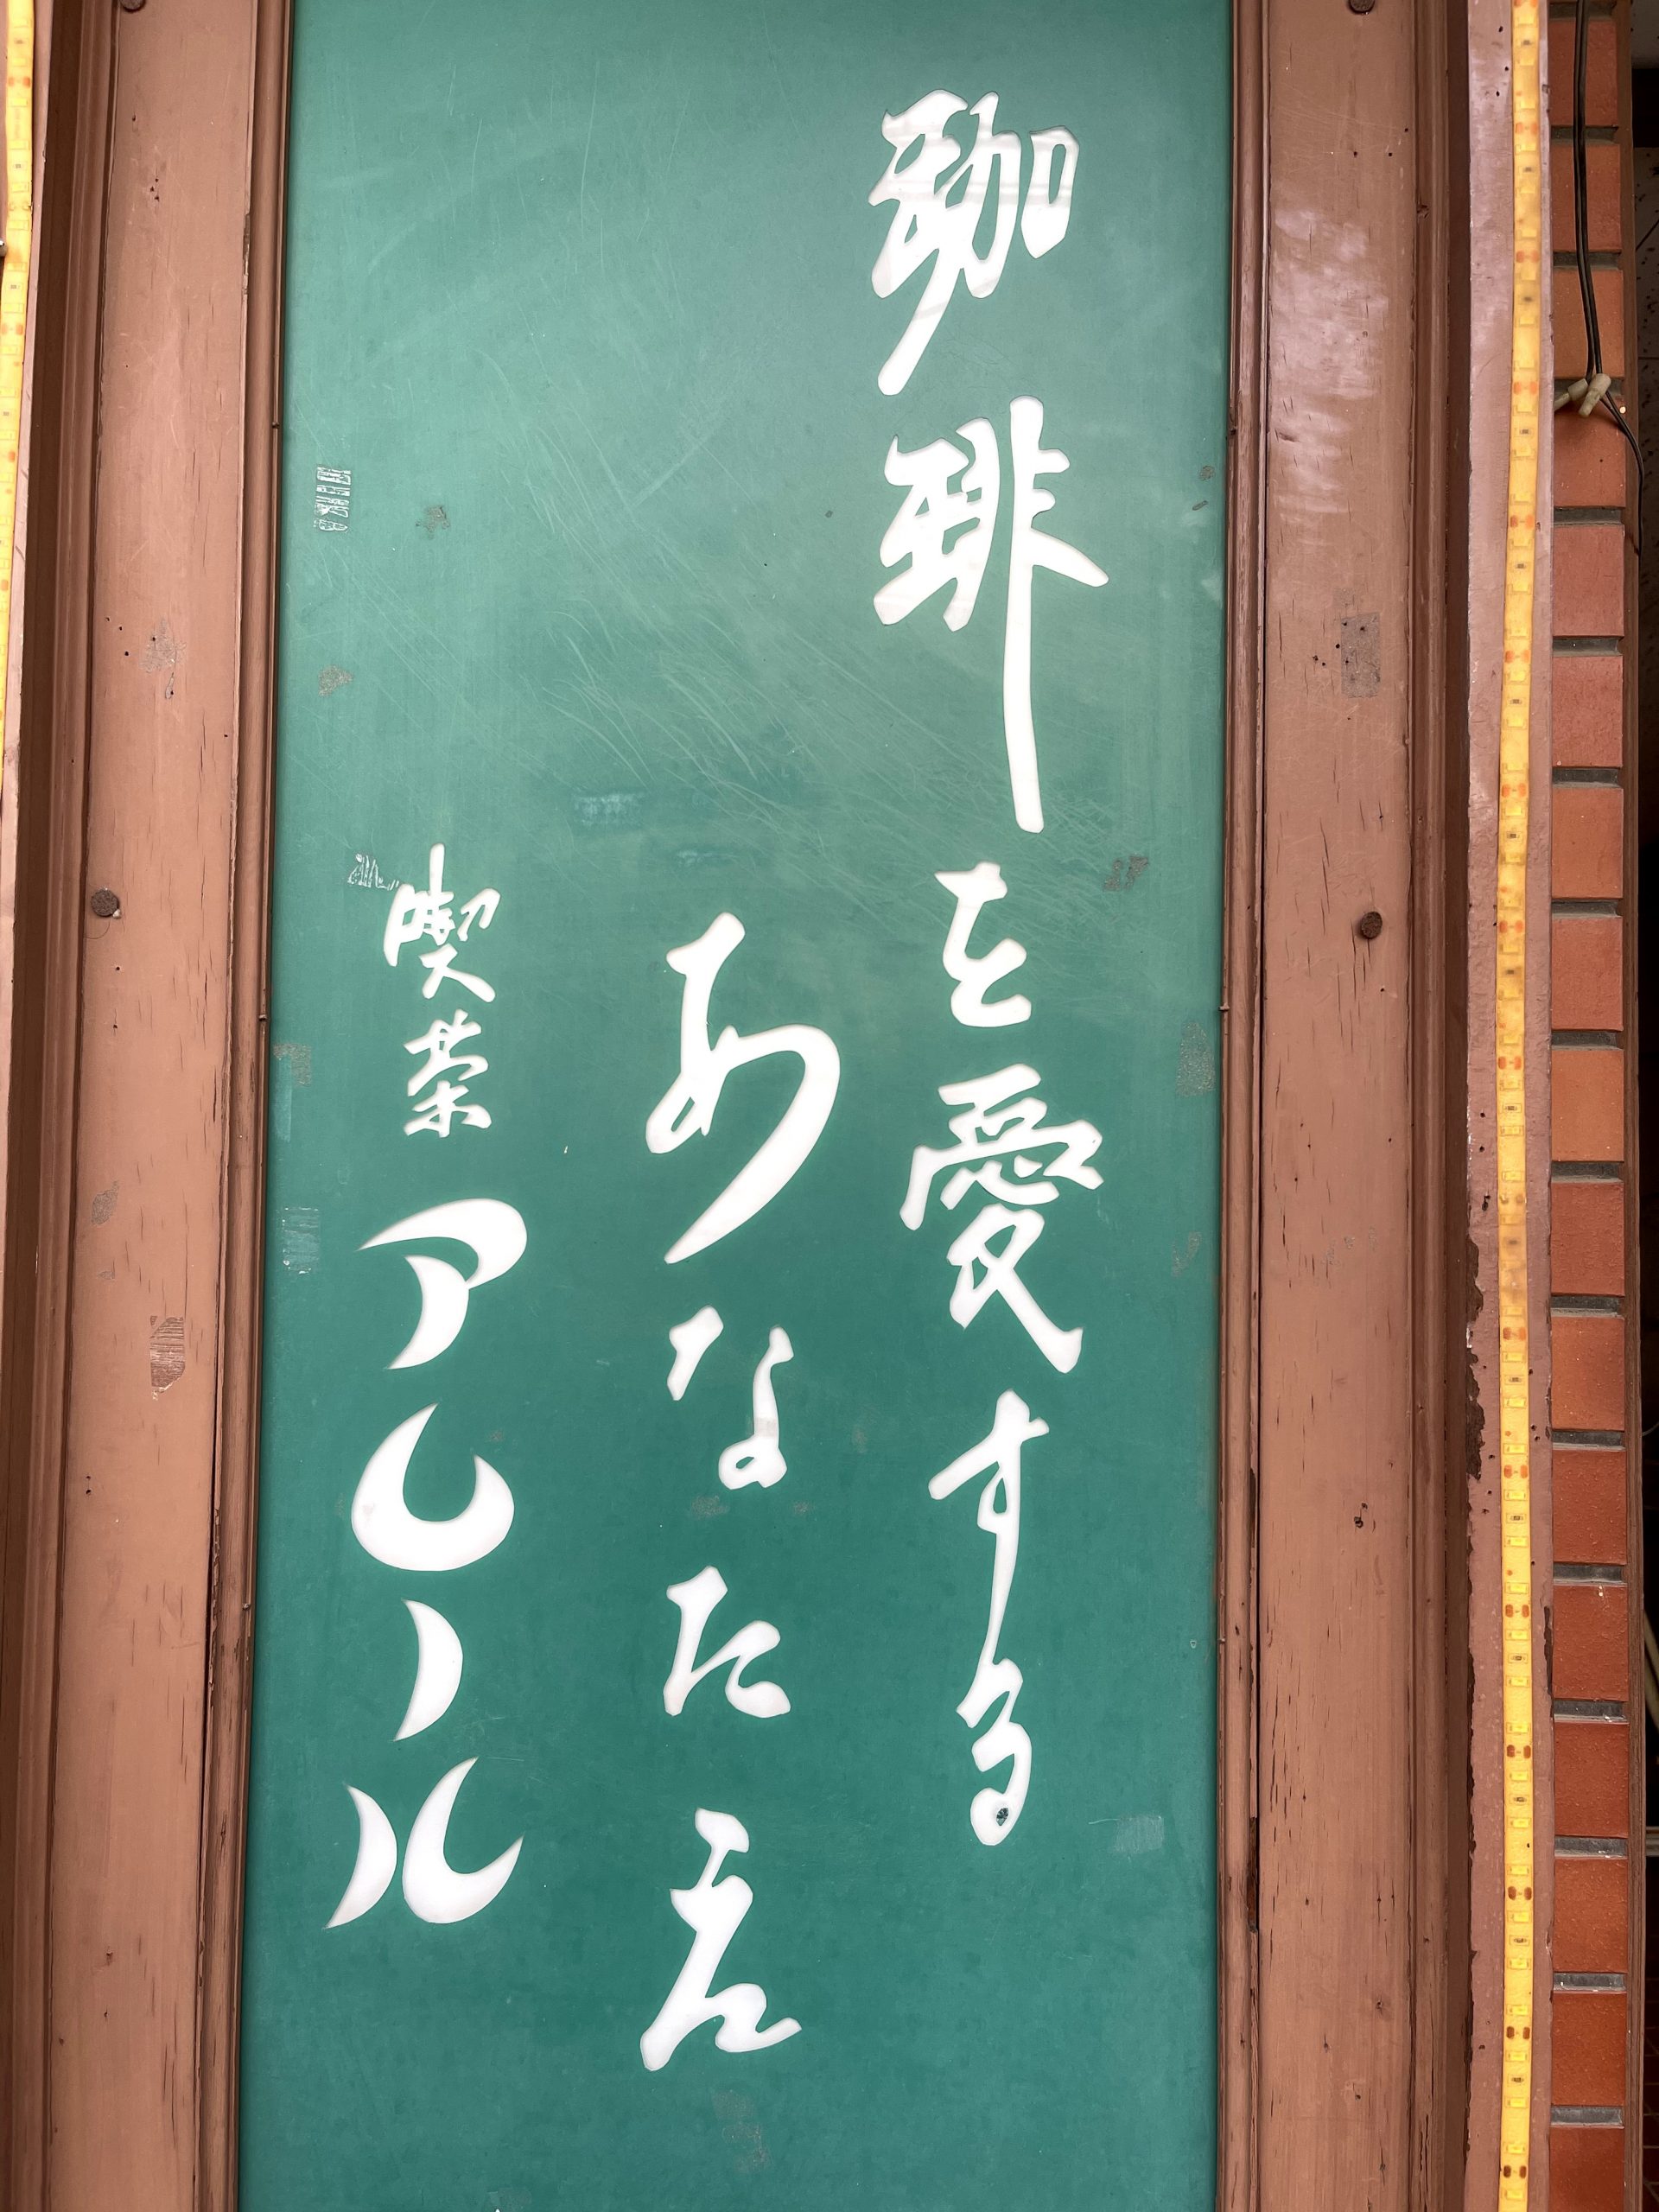 珈琲を愛する
あなたえ
喫茶 アムール